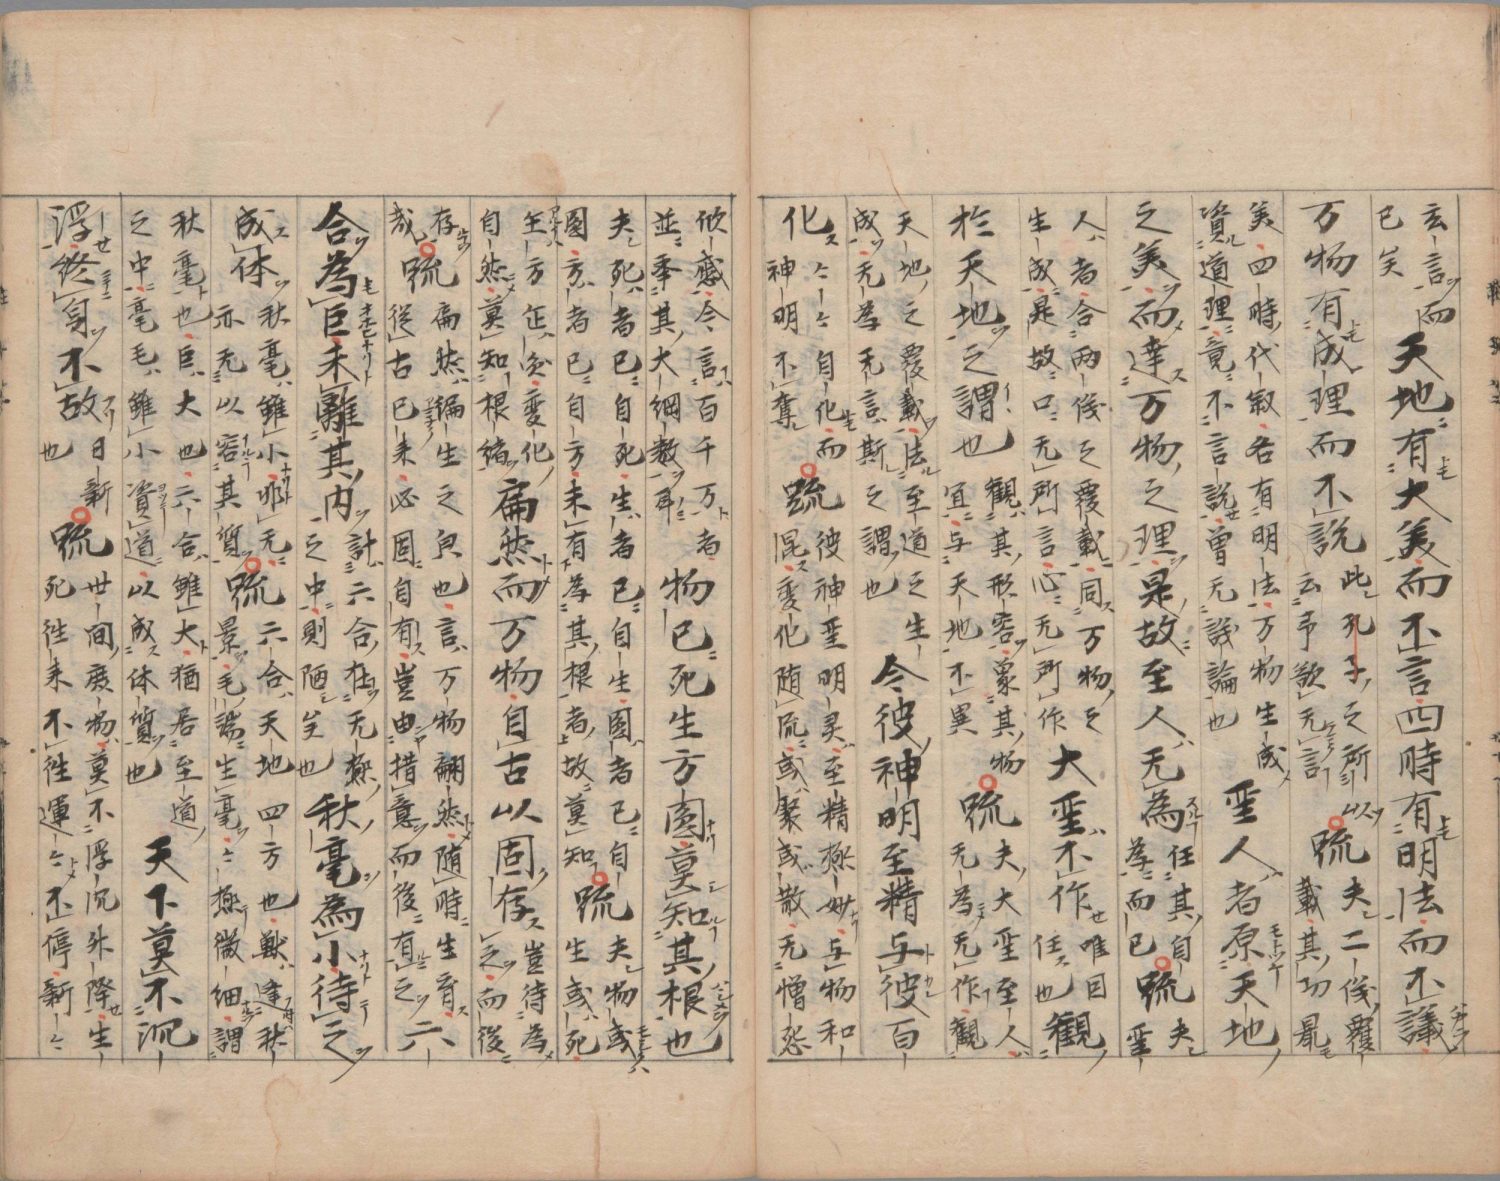 玄言而已矣天地有大美而不言四時有明法而不議
万物有成理而不說此孔子之所以云予欲无言疏夫二儀覆載其功最
美四時代叙各有明法万物生成資道理竟不言説曽无議論也聖人者原天地
之美而達万物之理是故至人无為任其自為而已疏夫聖
人者合兩儀之覆載同万物之生成是故口无所言心无所作大聖不作唯因任也觀
於天地之謂也觀其形容象其物宜与天地不異疏夫大聖至人无為无作觀
天地之覆載法至道之生成无為无言斯之謂也今彼神明至精与彼百
化〻〻自化而神明不奪疏彼神聖明灵至精極妙与物和混変化随流或聚或散无憎怨
欣慼今言百千万者並举其大綱数耳物已死生方圓莫知其根也
夫死者已自死生者已自生圓者已自圓方者已自方未有為其根者故莫知疏夫物或生或死
方変化自然莫知根緒扁然而万物自古以固存豈待為之而後
存哉疏扁然徧生之皃也言万物翩然随時生育從古已来必固自有豈由措意而後有之六
合為巨未離其内計六合在无極之中則陋矣也秋毫為小待之
成体秋毫雖小非无亦无以容其質疏六合天地四方也獣逢秋景毛端生毫〻極微細謂
秋毫也巨大也六合雖大猶居至道之中毫毛雖小資道以成体質也天下莫不沉
浮終身不故日新也疏世間庶物莫不浮沉升降生死往来不住運〻不停新〻